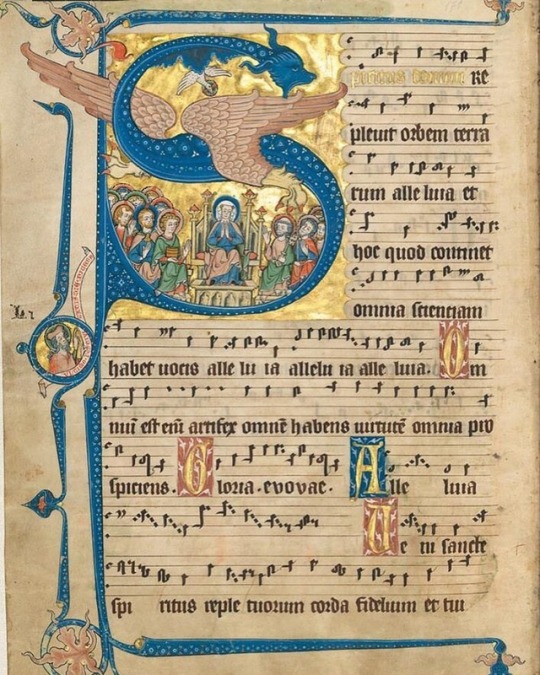 Spiritus domini RE
pleuit orbem terra
rum alle luia et
hoc quod continet
omnia scientiam
habet uocis alle lu ia allelu ia alle luia. Om
niū est em̄ artifex omnē habens uirtutē omnia pro
spiciens. Gloria. evovae. Alle luia
Ue ni sancte
spi ritus reple tuorum corda fidelium et tui